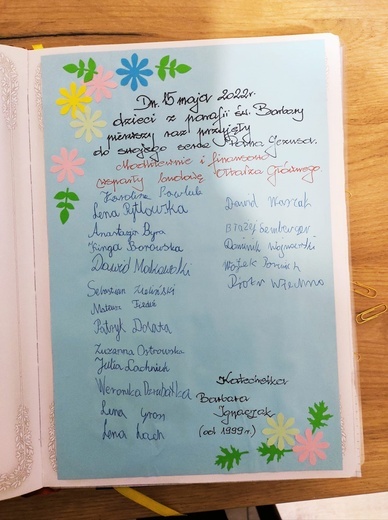 Dn. 15 maja 2022r.
dzieci z parafii św. Barbary
pierwszy raz przyjęły
do swojego serca Pana Jezusa.
Modlitewnie i finansowo
wsparły budowę Ołtarza Głównego
Karolina Pawlak
Lena Rytlowska
Anastazja Byra
Kinga Borowska
Dawid Makowski
Sebastian Zieliński
Mateusz
Patryk
Zuzanna Ostrowska
Julia Lachnik
Weronika
Lena Gron
Lena Lach
Dawid Marczak
Błażej
Dominik Wojnowski
Wojtek
Piotr
Katechetka
Barbara
Ignaczak
(od 1999r.)